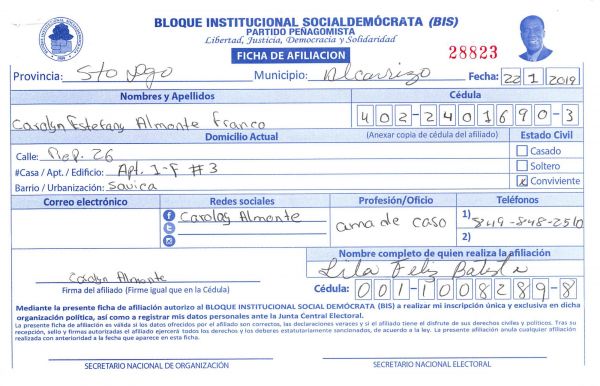 BLOQUE INSTITUCIONAL SOCIALDEMÓCRATA (BIS)
PARTIDO PEÑAGOMISTA
Libertad, Justicia, Democracia y Solidaridad
FICHA DE AFILIACION
28823
Provincia: Sto Dgo Municipio: Alcarrizo Fecha: 22 1 2019
Nombres y Apellidos
Cédula
Carolyn Estefany Almonte Franco
402-2401690-3
Domicilio Actual
(Anexar copia de cédula del afiliado)
Estado Civil
Calle: Rep. 26
Casado
#Casa / Apt. / Edificio: Apt. 1-F #3
Soltero
Barrio / Urbanización: Savica
x Conviviente
Correo electrónico
Redes sociales
Profesión/Oficio
Teléfonos
Carolay Almonte
ama de casa
1) 849-848-2510
2)
Nombre completo de quien realiza la afiliación
Lila Feliz Batista
Carolyn Almonte
Firma del afiliado (Firme igual que en la Cédula)
Cédula: 001-1008289-8
Mediante la presente ficha de afiliación autorizo al BLOQUE INSTITUCIONAL SOCIAL DEMÓCRATA (BIS) a realizar mi inscripción única y exclusiva en dicha
organización política, así como a registrar mis datos personales ante la Junta Central Electoral.
La presente ficha de afiliación es válida si los datos ofrecidos por el afiliado son correctos, las declaraciones veraces y si el afiliado tiene el disfrute de sus derechos civiles y políticos. Tras su
recepción, sello y firmas autorizadas el afiliado ejercerá todos los derechos y los deberes estatutariamente sancionados, de acuerdo a la ley. La presente afiliación anula cualquier afiliación
realizada con anterioridad a la fecha que aparece en esta ficha.
SECRETARIO NACIONAL DE ORGANIZACIÓN
SECRETARIO NACIONAL ELECTORAL